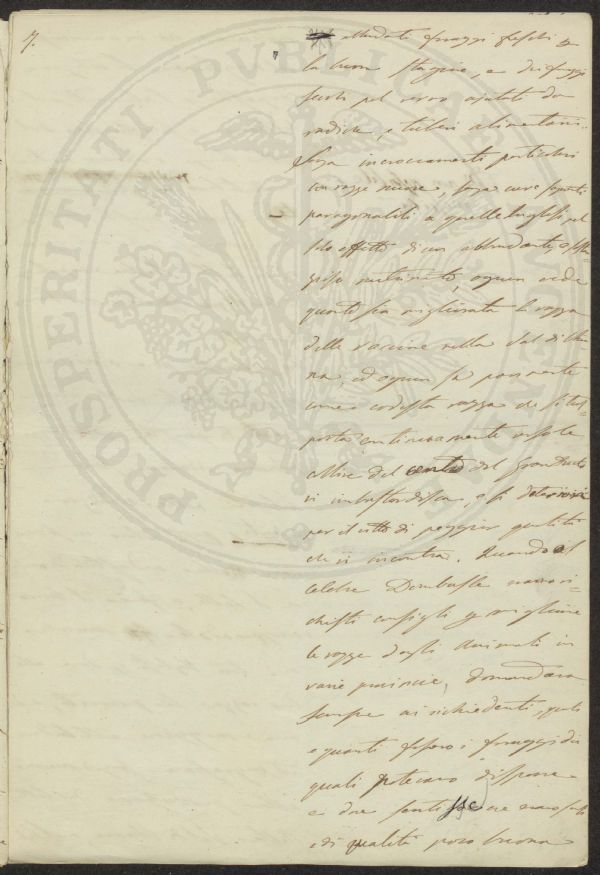 7.
abbondanti foraggi freschi p
la buona stagione, e di foraggi
secchi pel verno ajutati da
radiche, e tuberi alimentari.
Senza incrociamenti particolari
con razze nuove, senza cure
paragonabili a quelle Inglesi, pel
solo effetto di un abbondante, e
nutrimento, ognun vede
quanto sia migliorata la razza
delle vaccine nella Val di Chia=
na, ed ognun sa parimente
come codesta razza che si tras=
porta continuamente nelle
del Gran Ducato
vi imbastardisca, e si deteriori
per il vitto di peggior qualità
che vi incontra. Quando al
celebre Dombasle erano ri=
chiesti consigli p migliorare
le razze degli Animali in
varie provincie, domandava
sempre ai richiedenti, quali
e quanti fossero i foraggi dei
quali potevano disporre
e dove sentisse che erano
e di qualità poco buona
PROSPERITATI PUBLICAE AUGENDAE